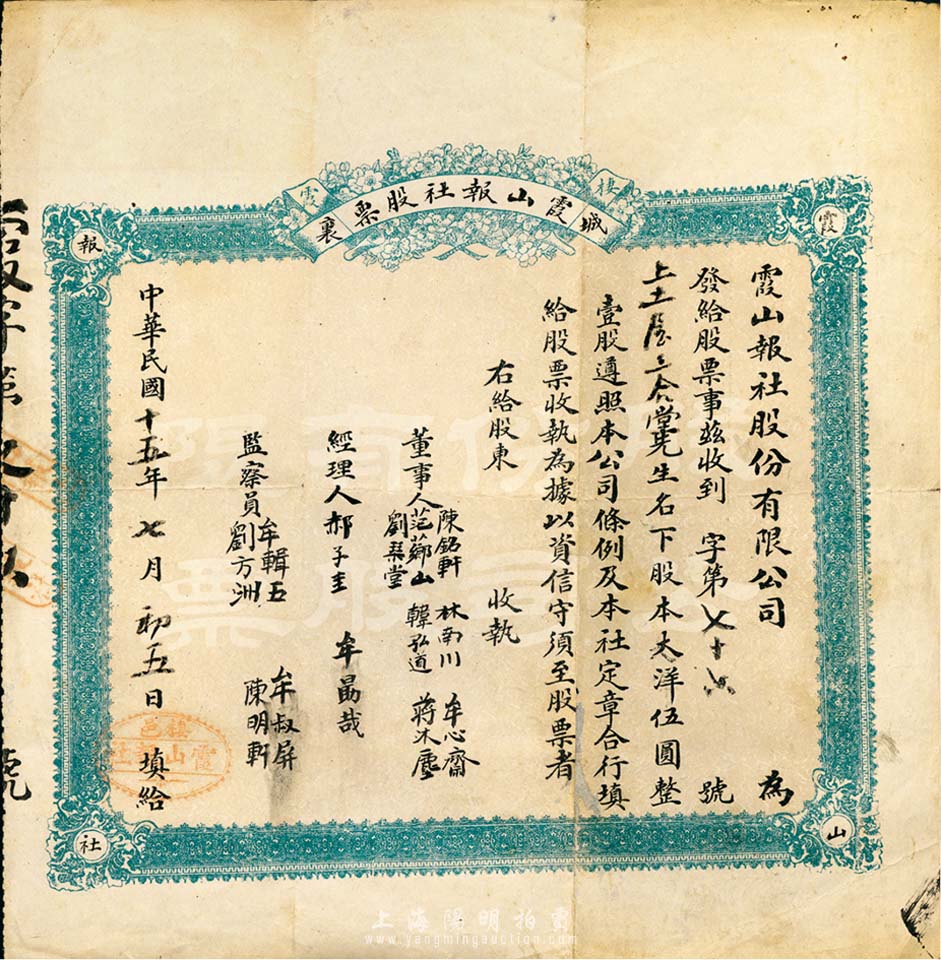 棲霞
城霞山報社股票襄
霞
山
報
社
霞山報社股份有限公司 為
發給股票事茲收到 字第七十 號
上土 堂先生名下股本大洋伍圓整
壹股遵照本公司條例及本社定章合行填
給股票收執為據以資信守須至股票者
右給股東 收執
董事人 陳銘軒 范薌山 劉琹堂 林南川 韓弘道 牟心齋 蔣沐塵
經理人 郝子圭 牟勗哉
監察員 牟輯五 劉方洲 牟叔屏 陳明軒
中華民國十五年七月初五日填給
股份有限
公司股票
霞山報社
號
上海陽明拍賣
www.yangmingauction.com